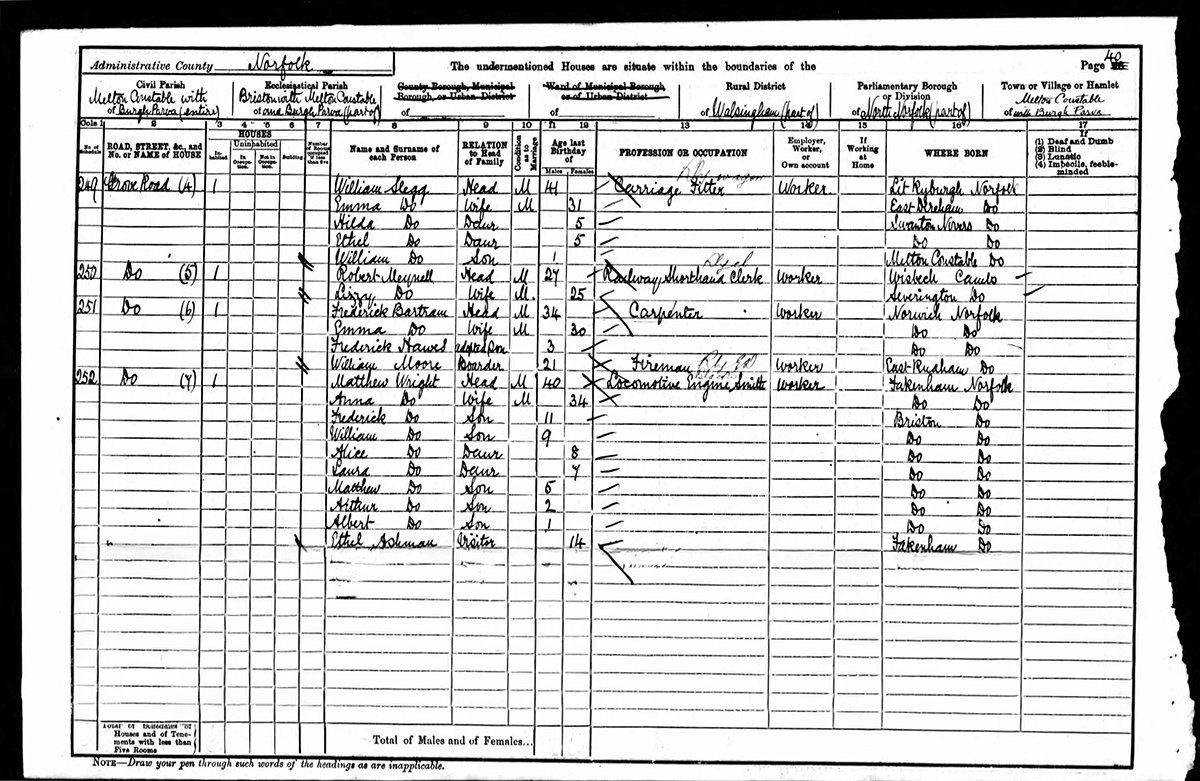 Administrative County Norfolk
The undermentioned Houses are situate within the boundaries of the
Page 40
Civil Parish
Ecclesiastical Parish
County Borough, Municipal Borough, or Urban District
Ward of Municipal Borough or of Urban District
Rural District
Parliamentary Borough or Division
Town or Village or Hamlet
of Melton Constable with Burgh Parva (entire)
of Briston with Melton Constable and Burgh Parva (part of)
of
of
of Walsingham (part of)
of North Norfolk (part of)
of Melton Constable with Burgh Parva
Cols 1 2 3 4 5 6 7 8 9 10 11 12 13 14 15 16 17
No. of Schedule
ROAD, STREET, &c., and No. or NAME of HOUSE
HOUSES
Inhabited
Uninhabited
In Occupation.
Not in Occupation.
Building
Number of Rooms occupied if less than five
Name and Surname of each Person
RELATION to Head of Family
Condition as to Marriage
Age last Birthday of
Males Females
PROFESSION OR OCCUPATION
Employer, Worker, or Own account
If Working at Home
WHERE BORN
If (1) Deaf and Dumb (2) Blind (3) Lunatic (4) Imbecile, feeble-minded
249 Grove Road (4) 1 William Slegg Head M 41 Carriage Fitter Worker Lit Ryburgh Norfolk
Emma Do Wife M 31 East Dereham Do
Hilda Do Daur 5 Swanton Novers Do
Ethel Do Daur 5 Do Do
William Do Son 1 Melton Constable Do
250 Do (5) 1 Robert Meynell Head M 27 Railway Shorthand Clerk Worker Wisbech Cambs
Lizzy Do Wife M. 25 Do
251 Do (6) 1 Frederick Bartram Head M 34 Carpenter Worker Norwich Norfolk
Emma Do Wife M 30 Do Do
Frederick Hawes adopted Son 3 Do Do
William Moore Boarder 21 Fireman Worker East Rudham Do
252 Do (7) 1 Matthew Wright Head M 40 Locomotive Engine Smith Worker Fakenham Norfolk
Anna Do Wife M 34 Do Do
Frederick Do Son 11 Briston Do
William Do Son 9 Do Do
Alice Do Daur 8 Do Do
Laura Do Daur 7 Do Do
Matthew Do Son 5 Do Do
Arthur Do Son 2 Do Do
Albert Do Son 1 Do Do
Ethel Ashman Visitor 14 Fakenham Do
Total of Schedules of Houses and of Tenements with less than Five Rooms
Total of Males and of Females...
NOTE—Draw your pen through such words of the headings as are inapplicable.